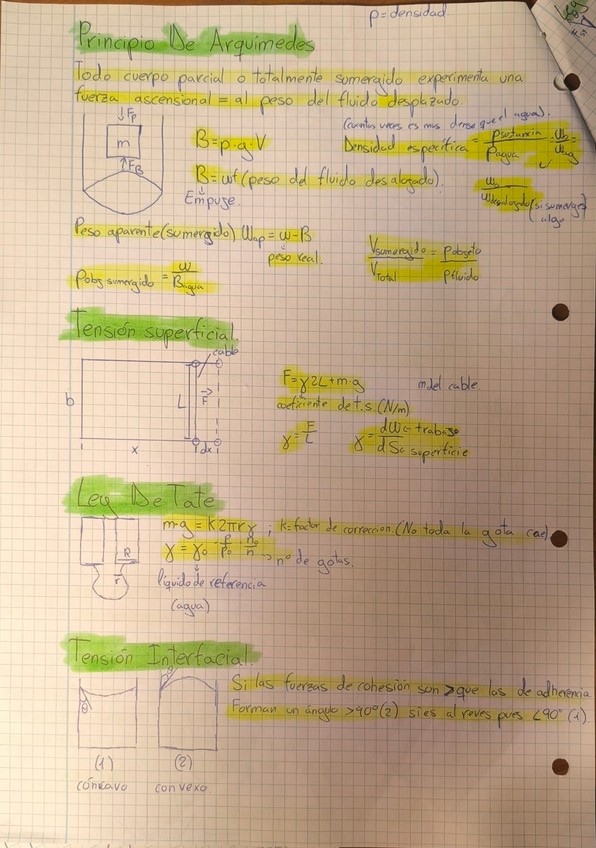 ρ=densidad
Principio De Arquimedes
Todo cuerpo parcial o totalmente sumergido experimenta una
fuerza ascensional = al peso del fluido desplazado.
(cuantas veces es mas dense que el agua).
↓Fp
m
↑FB
B=ρ·g·V
Densidad especifica = ρsustancia/ρagua = ω/ωag =
B=ωf (peso del fluido desalogado).
Empuje.
ω/ω desalogado (si sumerges algo
Peso aparente (sumergido) ωap = ω-B
peso real.
Vsumergido/VTotal = ρobjeto/ρfluido
ρobj sumergido = ω/Bagua
Tensión superficial
cable
b
L
F
x
dx
F=γ2L+m·g
m del cable
coeficiente de t.s. (N/m)
γ=F/L
γ=dW/dS
trabajo
superficie
Ley De Tate
m·g = k2πrγ ; k=factor de correccion (No toda la gota cae)
γ = γ₀ ρ/ρ₀ n₀/n → nº de gotas.
R
r
líquido de referencia
(agua)
Tensión Interfacial
θ
θ
Si las fuerzas de cohesión son > que las de adherencia
Forman un ángulo >90º (2) si es al reves pues <90º (1).
(1)
(2)
cóncavo
convexo